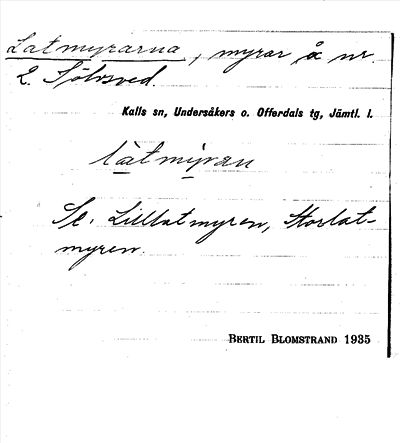 Latmyrarna, myrar å nr.
2. Sölvsved.
Kalls sn, Undersåkers o. Offerdals tg, Jämtl. l.
làtmýran
Se. Lillatmyren, Storlat-
myren.
BERTIL BLOMSTRAND 1935